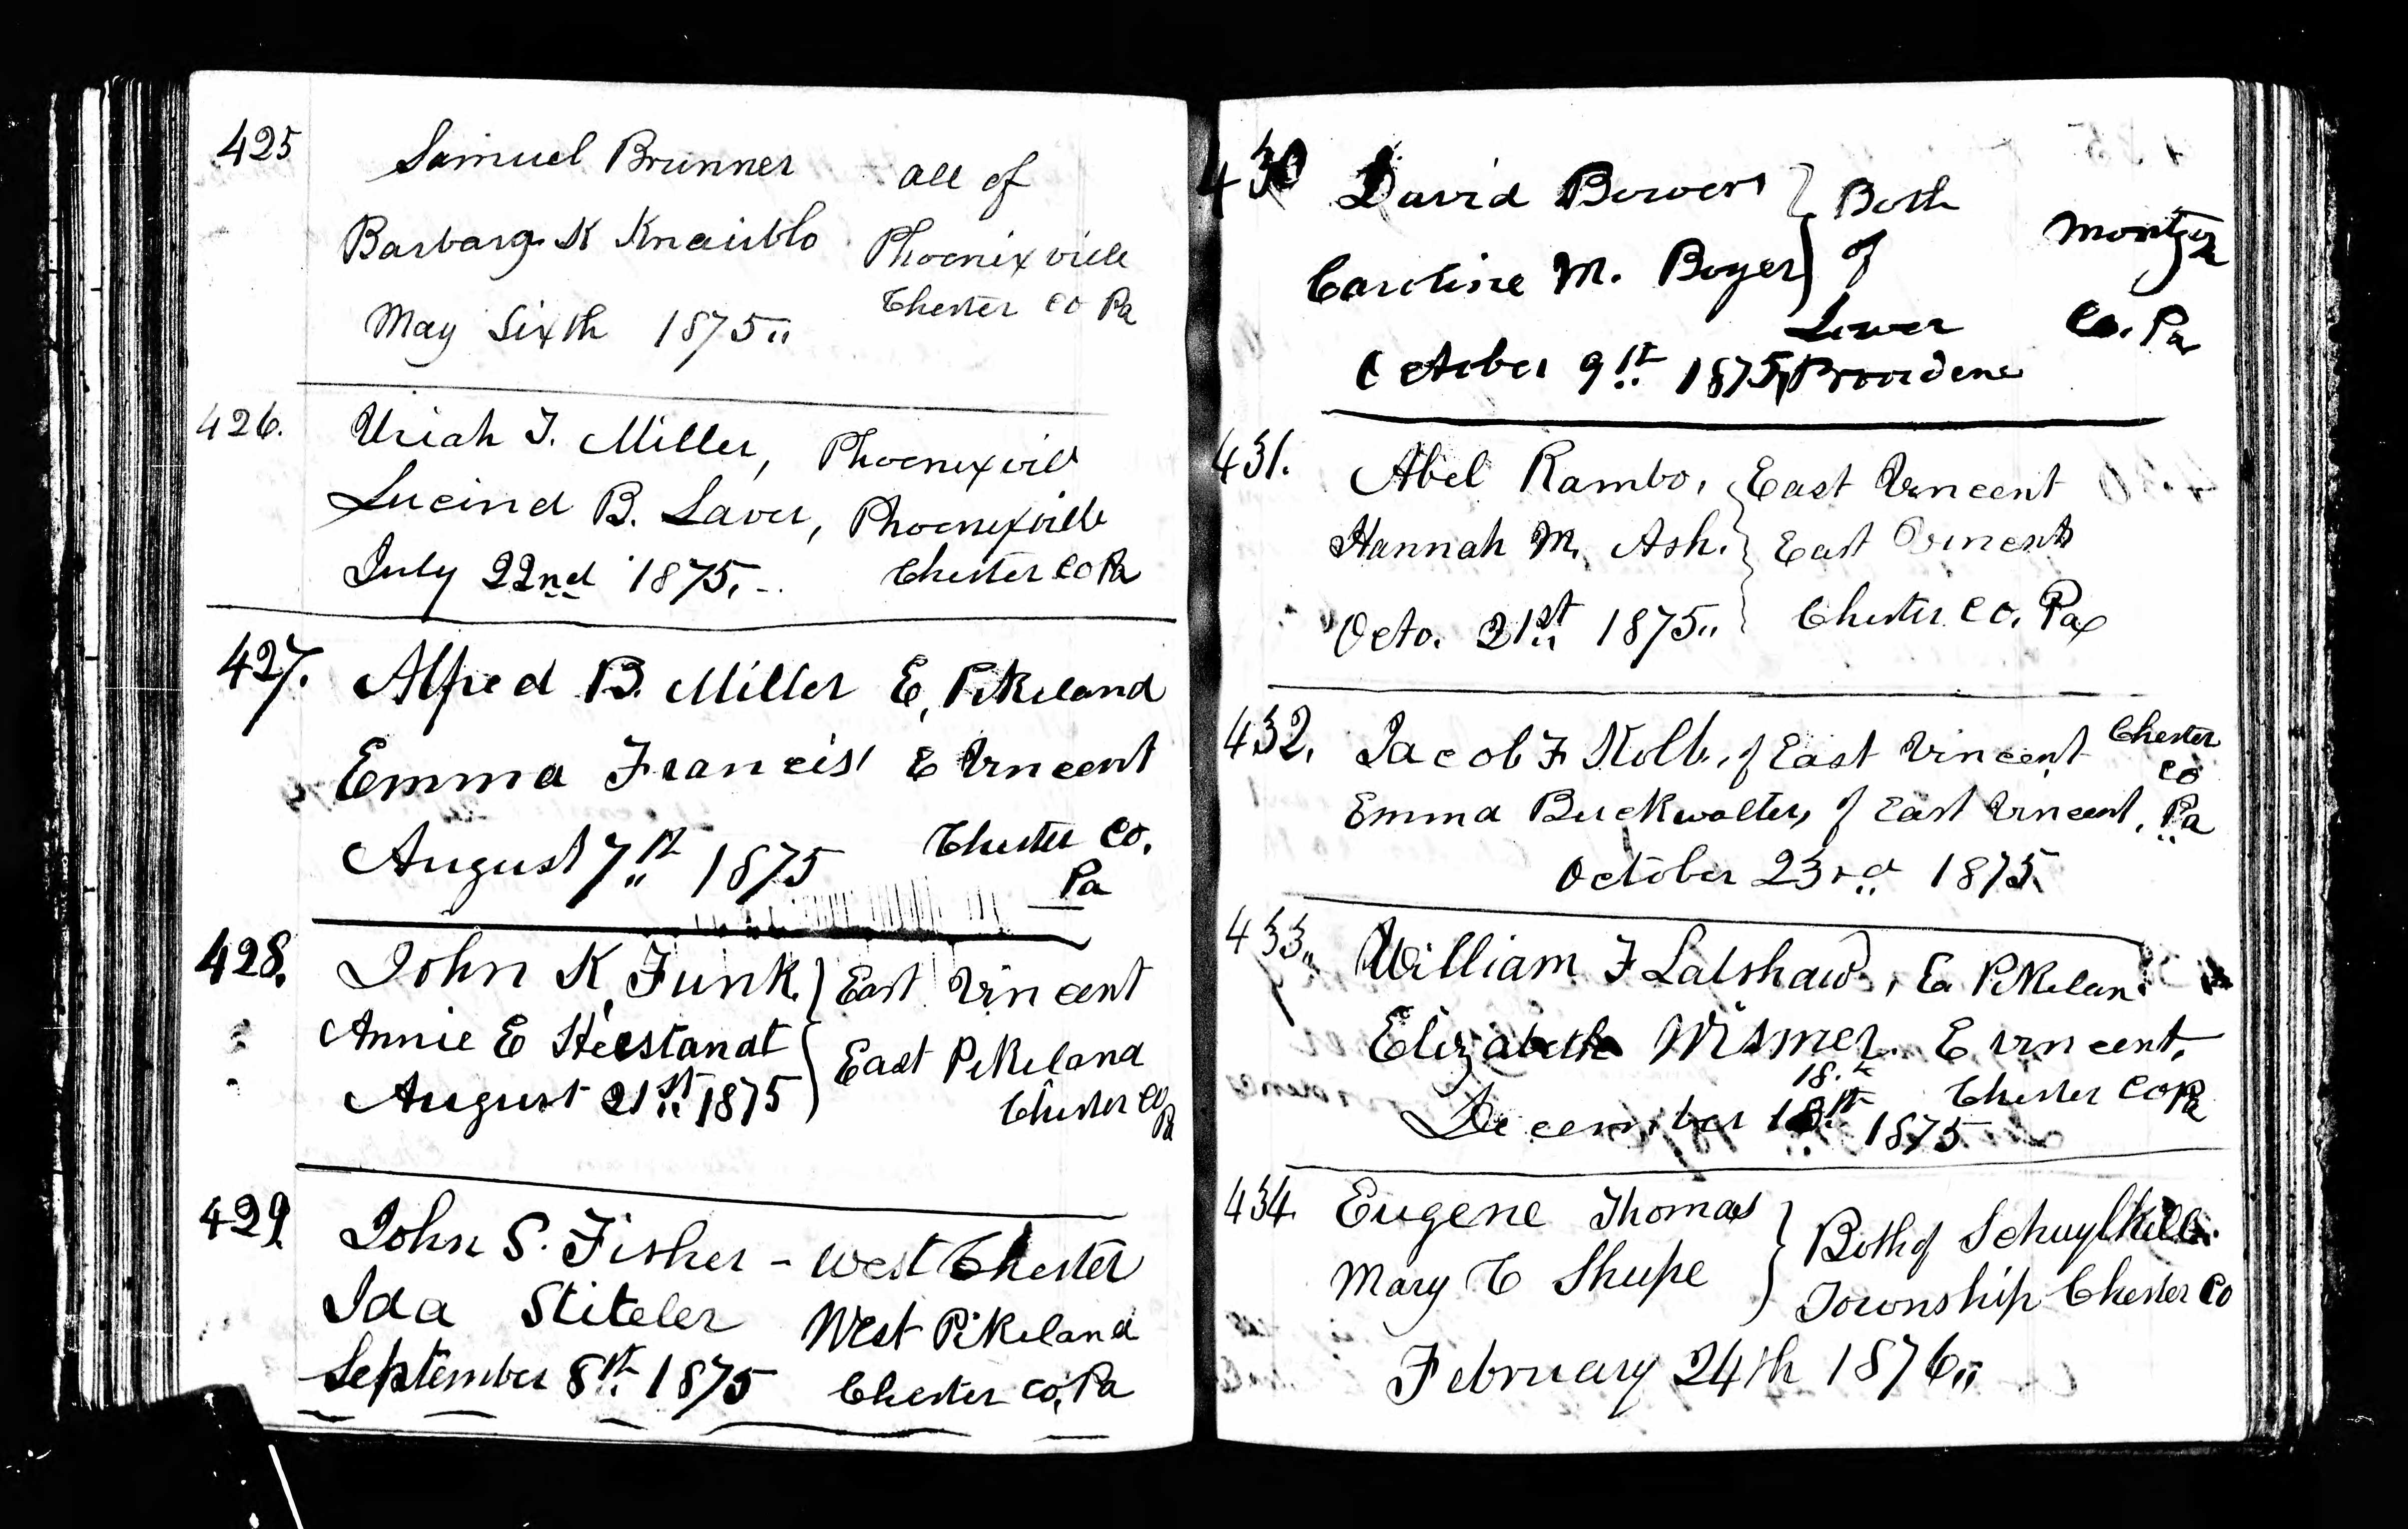 425
Samuel Brunner all of
Barbara K Knaiublo Phoenixville
May Sixth 1875 Chester Co Pa
426. Uriah T. Miller, Phoenixvill
Lucind B. Laver, Phoenixville
July 22nd 1875. Chester Co Pa
427. Alfred B. Miller E, Pikeland
Emma Francis E Vincent
August 7st 1875 Chester Co.
Pa
428. John K. Funk. East Vincent
Annie E Hiestandt East Pikeland
August 21st 1875 Chester Co
Pa
429 John S. Fisher - West Chester
Ida Stiteler West Pikeland
September 8st 1875 Chester Co, Pa
430 David Bowers } Both Montg
Caroline M. Boyer } of
Lower Co. Pa
October 9st 1875, Providene
431. Abel Rambo, East Vincent
Hannah M. Ash. East Vincent
Octo. 21st 1875 Chester Co. Pa
432. Jacob F Kolb, of East Vincent Chester
Co
Emma Buckwalter, of East Vincent, Pa
October 23rd 1875.
433 William F Latshaw, E. Pikelan
Elizabeth Wismer. E Vincent,
18.
December 18th 1875 Chester Co Pa
434. Eugene Thomas } Both of Schuylkill
Mary C Shupe } Township Chester Co
February 24th 1876